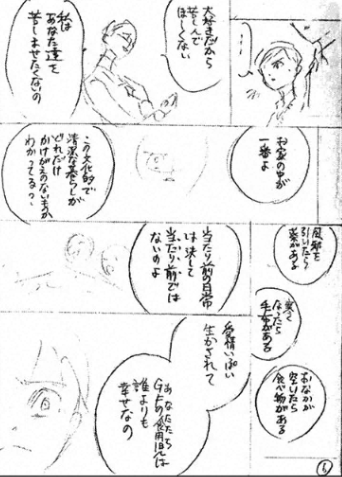 大好きだから
苦しんで
ほしくない
私は
あなた達を
苦しませたくないの
の中が
一番よ
この文化的で
清潔な暮らしが
どれだけ
かけがえのないものか
わかってる？
風邪を
引いたら
薬がある
寒く
なったら
毛布がある
おなかが
空いたら
食べ物がある
当たり前の日常
は決して
当たり前では
ないのよ
愛情いっぱい
生かされて
あなたたち
GFの食用児は
誰よりも
幸せなの